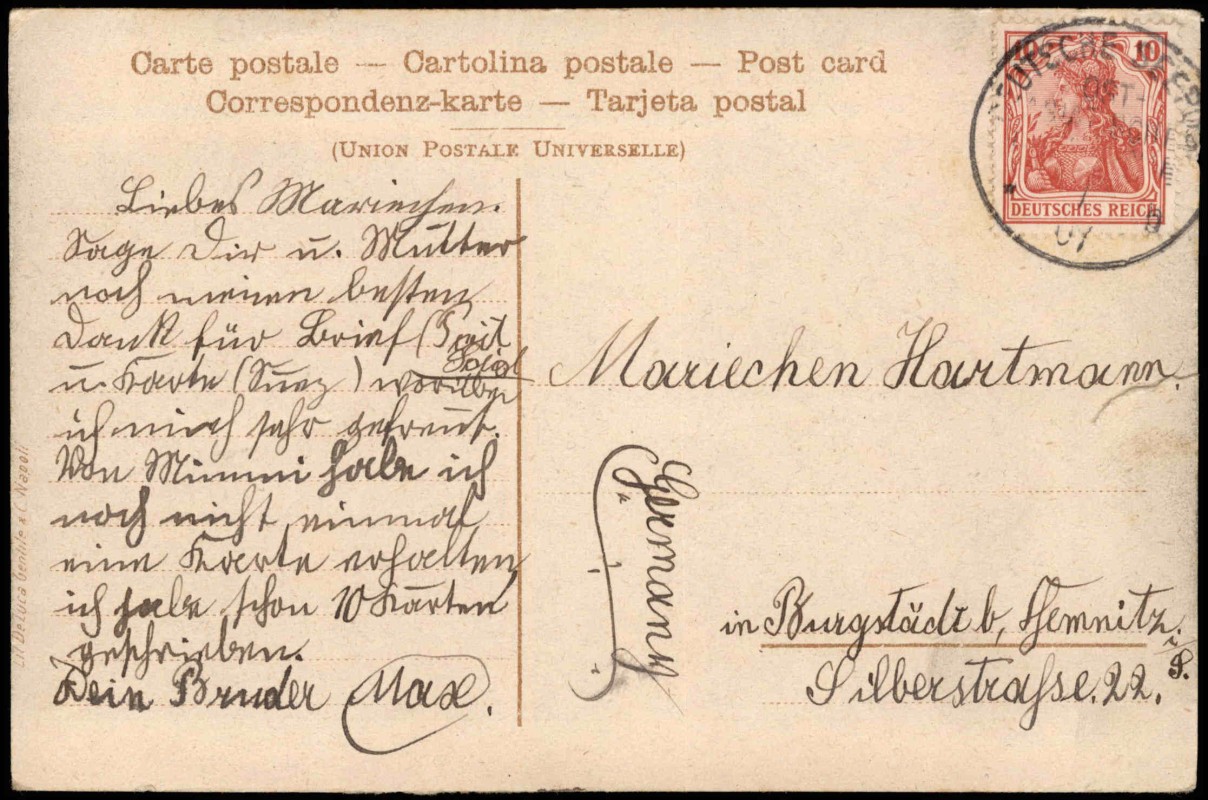 Carte postale — Cartolina postale — Post card
Correspondenz-karte — Tarjeta postal
(UNION POSTALE UNIVERSELLE)
10 10
DEUTSCHES REICH
DEUTSCHE SEEPOST
07
Liebes Mariechen.
Sage Dir u. Mutter
noch meinen besten
Dank für Brief (Port
Said
u. Karte (Suez) worüber
ich mich sehr gefreut.
Von Mimmi habe ich
noch nicht einmal
eine Karte erhalten,
ich habe schon 10 Karten
geschrieben.
Dein Bruder Max.
Mariechen Hartmann.
Germany
in Burgstädt b, Chemnitz.
i/S.
Silberstrasse. 22.
Lit DeLuca Gentile & C. Napoli